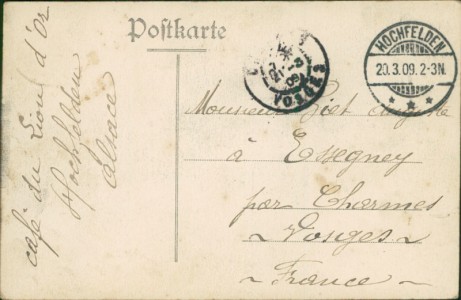 Postkarte
HOCHFELDEN
20.3.09.2-3N.
VOSGES
Monsieur
à Essegney
par Charmes
~ Vosges ~
~ France ~
café du Lion d'Or
Hochfelden
Alsace